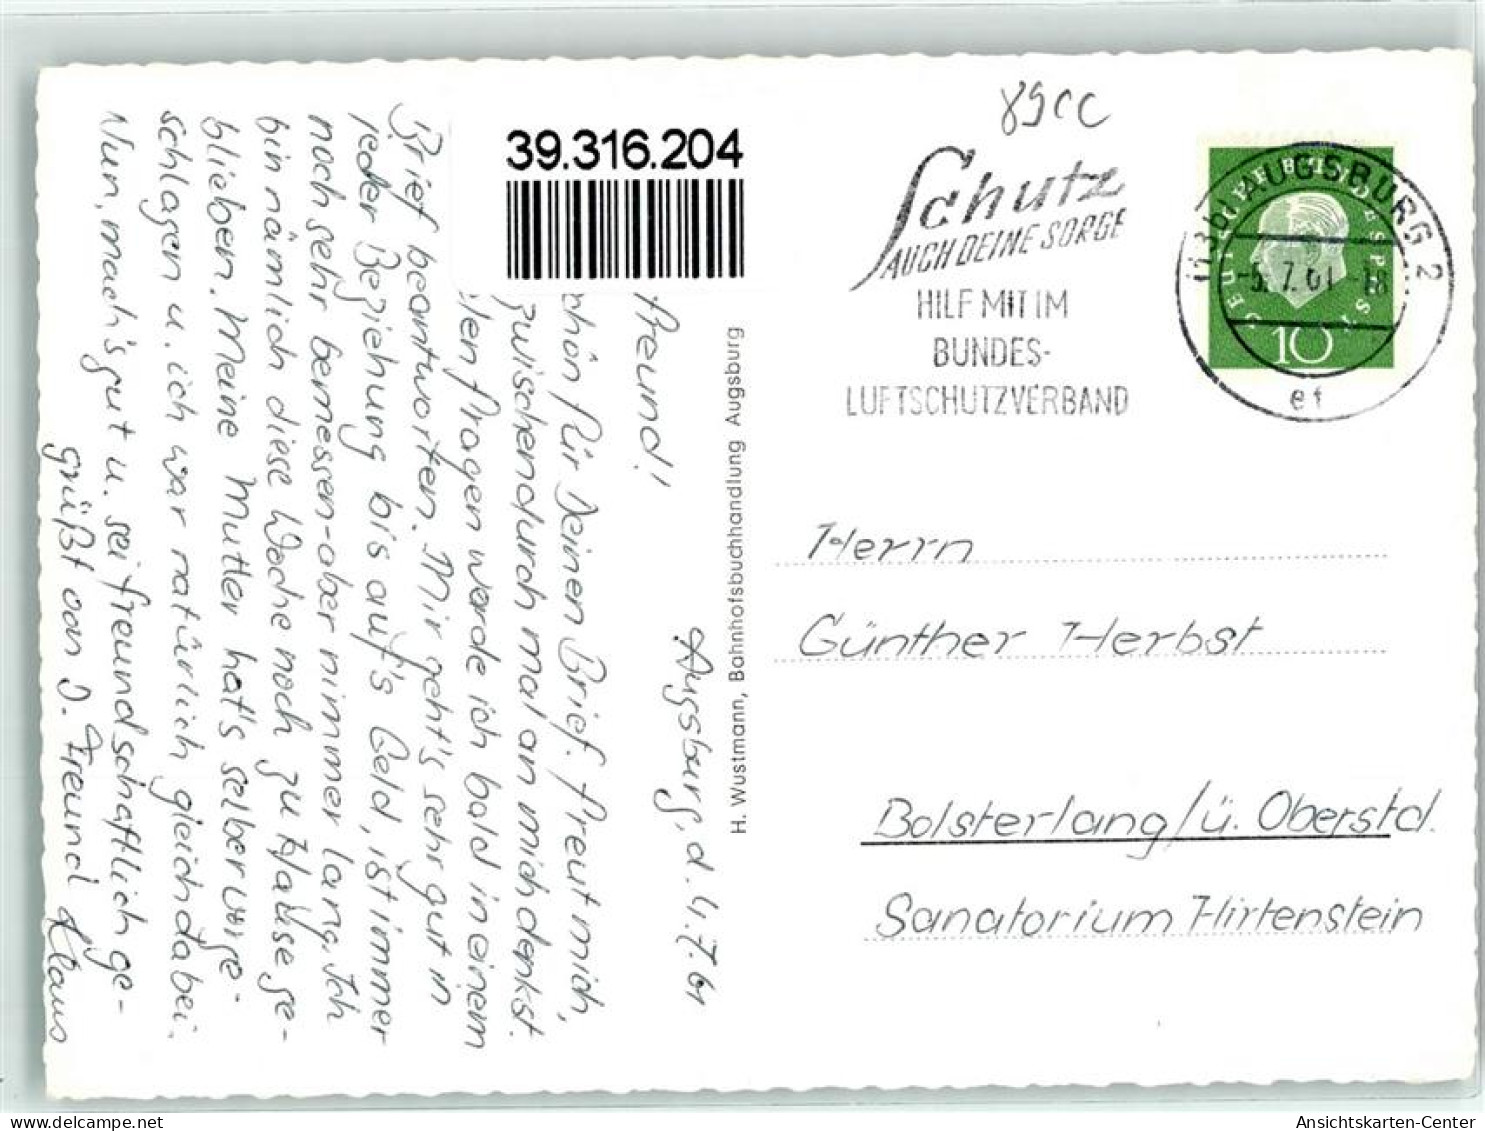 Augsburg, d. 4.7.61
Freund!
chön für Deinen Brief. Freut mich,
zwischendurch mal an mich denkst.
len Fragen werde ich bald in einem
Brief beantworten. Mir geht's sehr gut in
jeder Beziehung bis auf's Geld, ist immer
noch sehr bemessen-aber nimmer lang. Ich
bin nämlich diese Woche noch zu Hause ge-
blieben. Meine Mutter hat's selber vorge-
schlagen u. ich war natürlich gleich dabei.
Nun, mach's gut u. sei freundschaftlich ge-
grüßt von D. Freund Klaus
39.316.204
H. Wustmann, Bahnhofsbuchhandlung Augsburg
89cc
Schutz
AUCH DEINE SORGE
HILF MIT IM
BUNDES-
LUFTSCHUTZVERBAND
AUGSBURG 2
-5.7.61-18
et
DEUTSCHE BUNDESPOST
10
Herrn
Günther Herbst
Bolsterlang/ü. Oberstd.
Sanatorium Hirtenstein
Ansichtskarten-Center